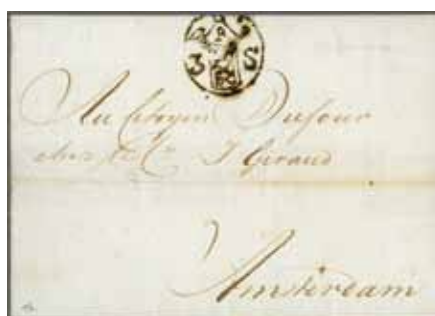 3 S
Au Citoyen Dufour
chez le C. J Giraud
Amsterdam